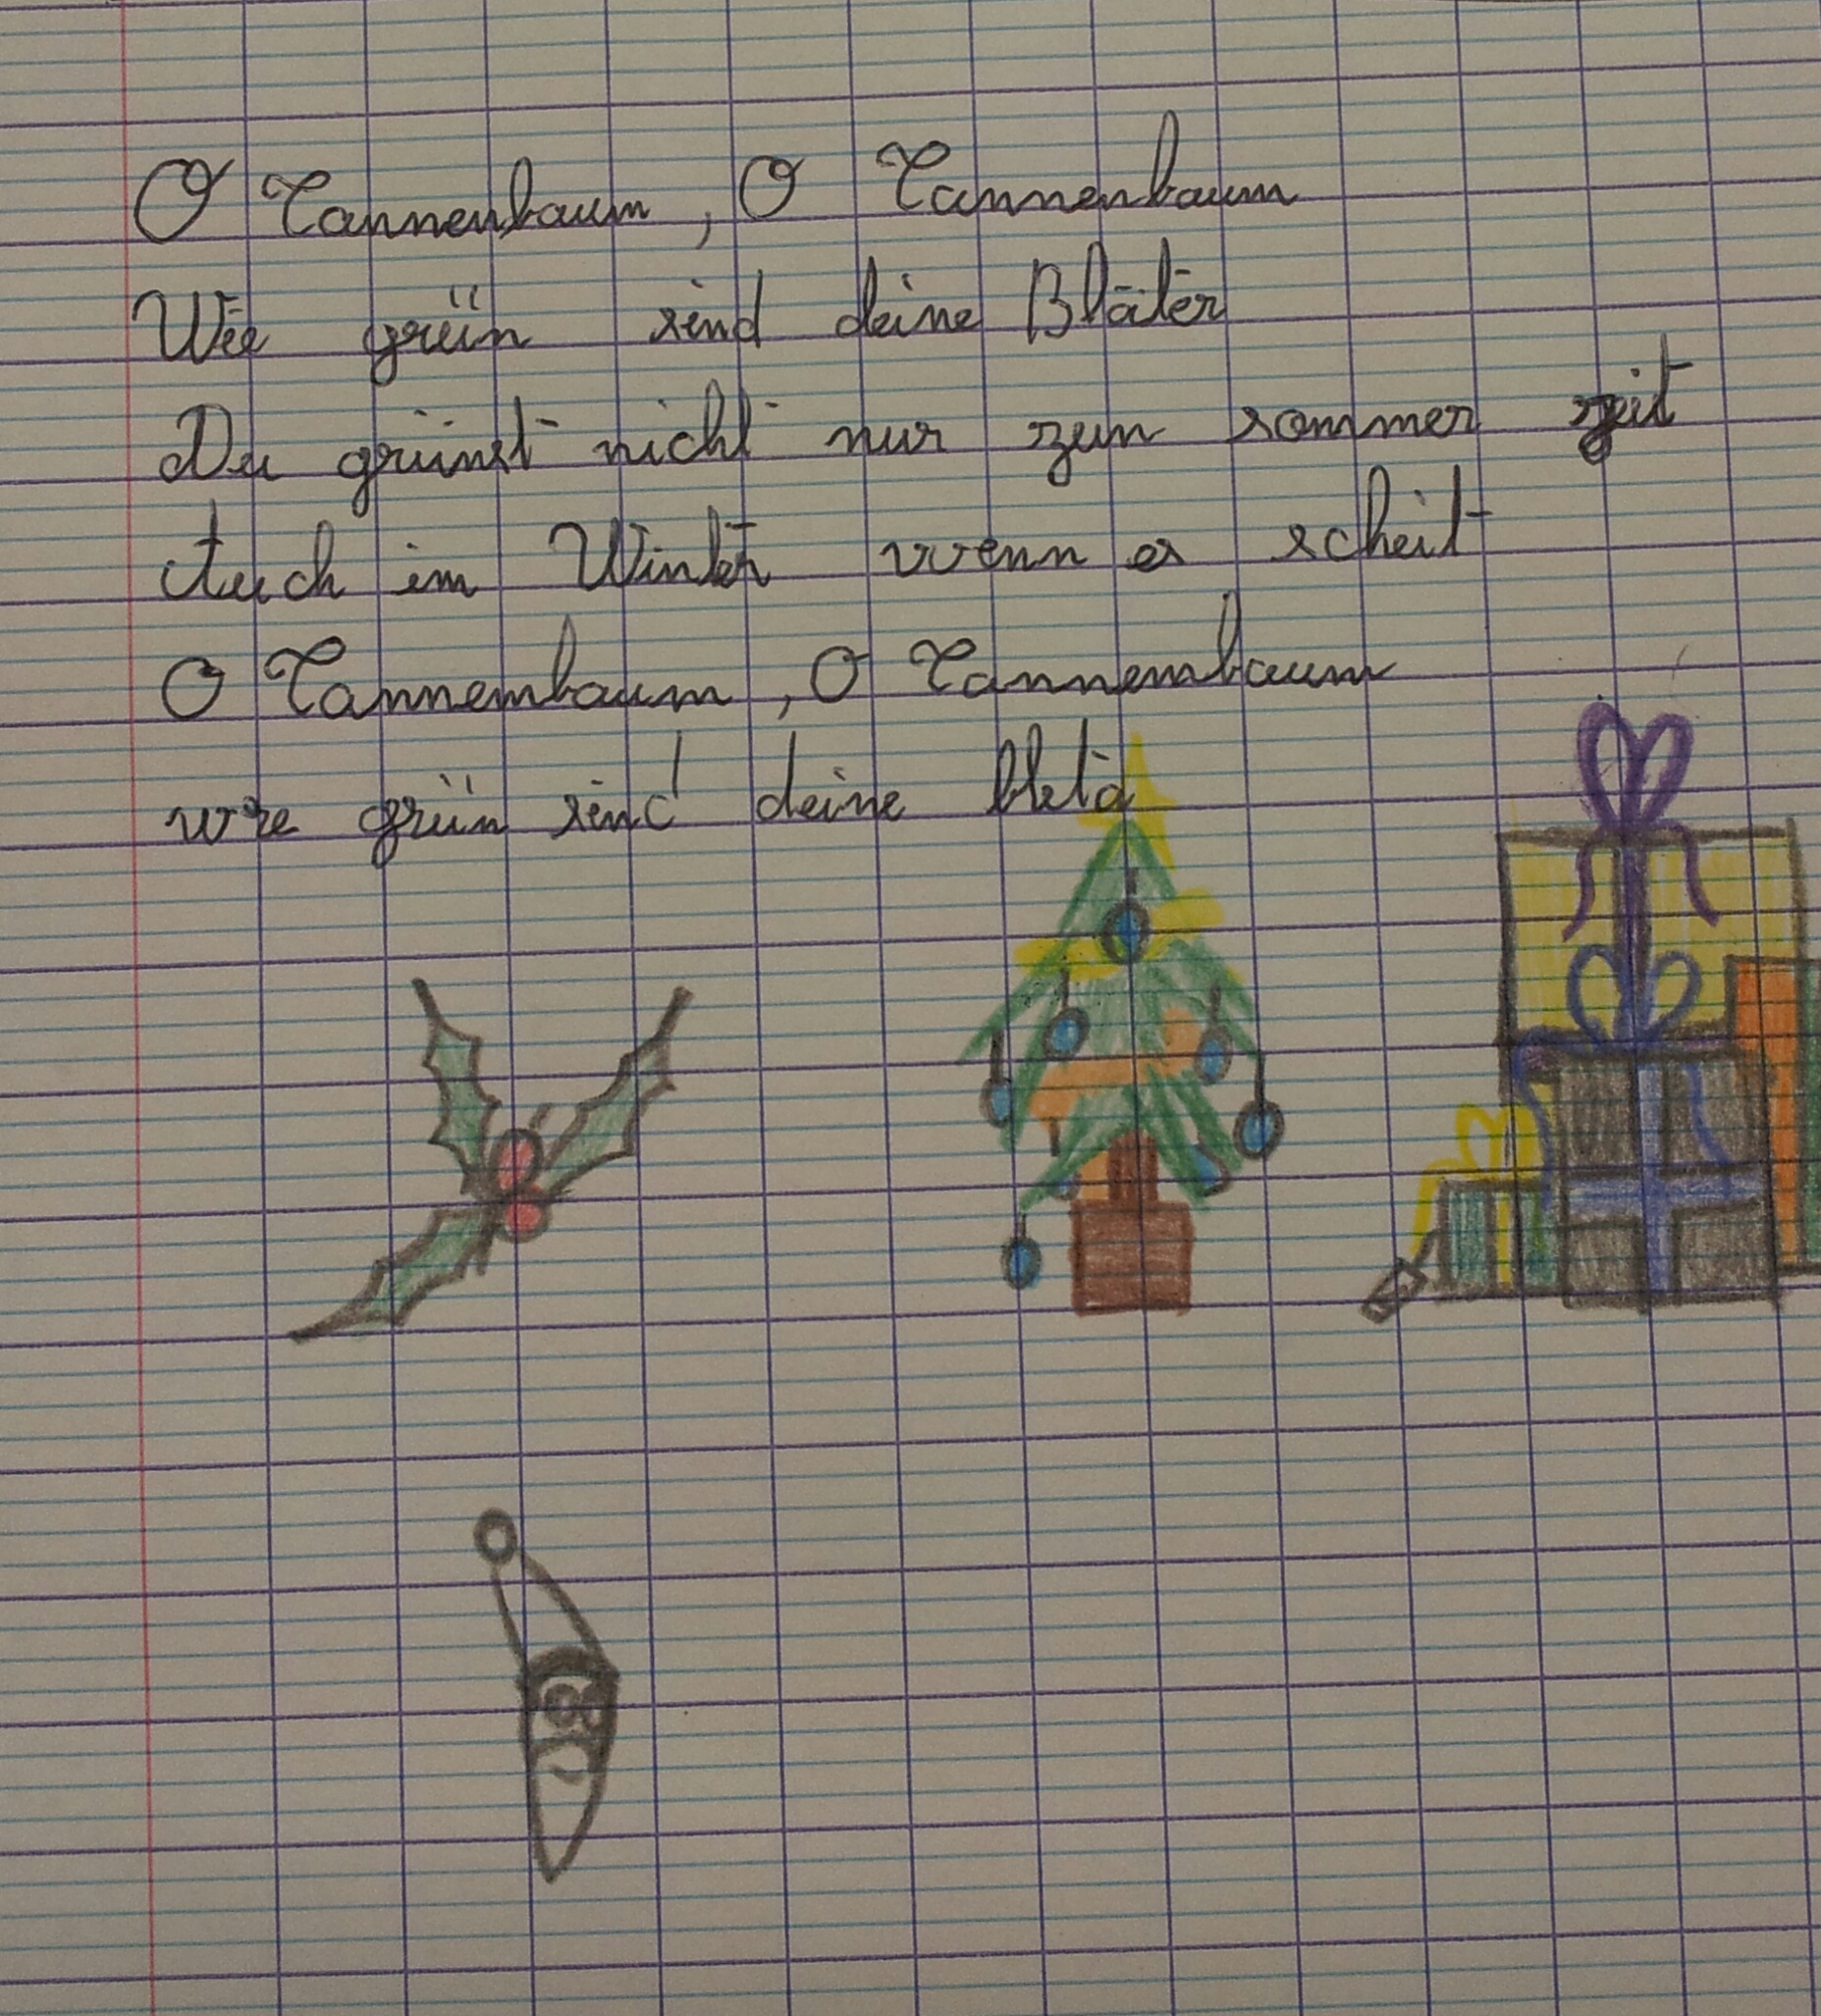 O Tannenbaum, O Tannenbaum
Wie grün sind deine Bläter
Du grünst nicht nur zum sommer zeit
Auch im Winter wenn es scheit
O Tannembaum, O Tannembaum
wie grün sind deine bletä